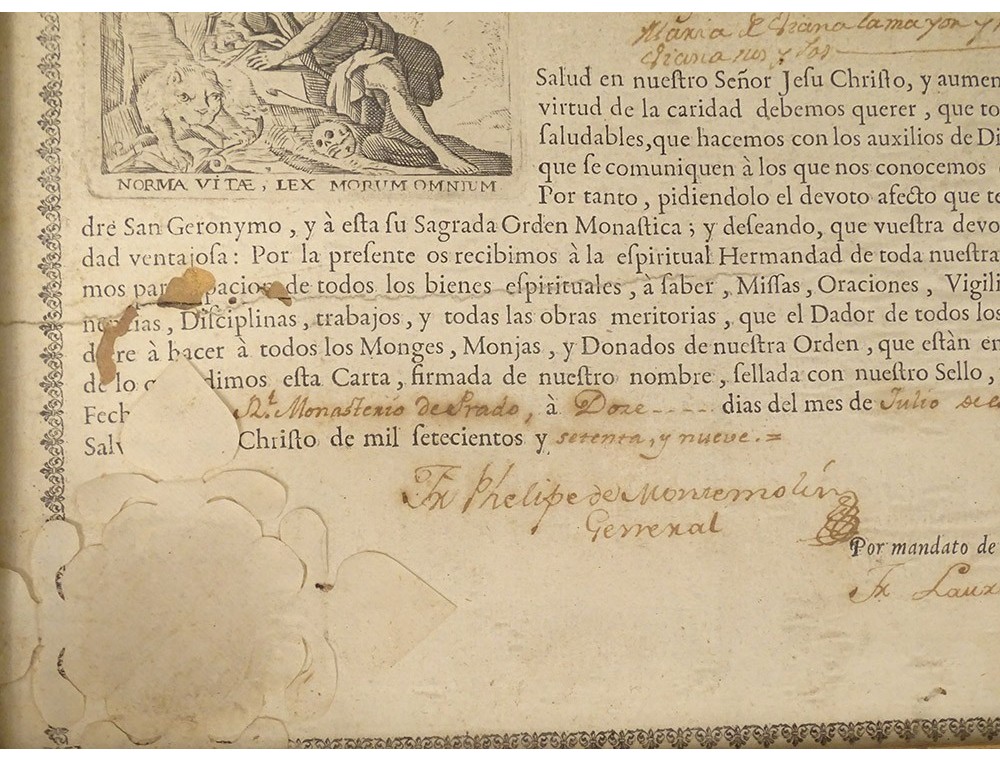 Maria
Salud en nueſtro Señor Jeſu Chriſto, y aumen
virtud de la caridad debemos querer, que to
ſaludables, que hacemos con los auxilios de Di
que ſe comuniquen à los que nos conocemos
NORMA VITÆ, LEX MORUM OMNIUM
Por tanto, pidiendolo el devoto afecto que te
dre San Geronymo, y à eſta ſu Sagrada Orden Monaſtica; y deſeando, que vueſtra devo
dad ventajoſa: Por la preſente os recibimos à la eſpiritual Hermandad de toda nueſtra
mos par pacion de todos los bienes eſpirituales, à ſaber, Miſſas, Oraciones, Vigili
Diſciplinas, trabajos, y todas las obras meritorias, que el Dador de todos los
re à hacer à todos los Monges, Monjas, y Donados de nueſtra Orden, que eſtàn en
de lo dimos eſta Carta, firmada de nueſtro nombre, ſellada con nueſtro Sello,
Fech Rl. Monasterio de Prado, à Doze dias del mes de Julio de
Salv Chriſto de mil ſetecientos y setenta, y nueve.=
Fr Phelipe de Montemolín
General
Por mandato de
Fr Laur